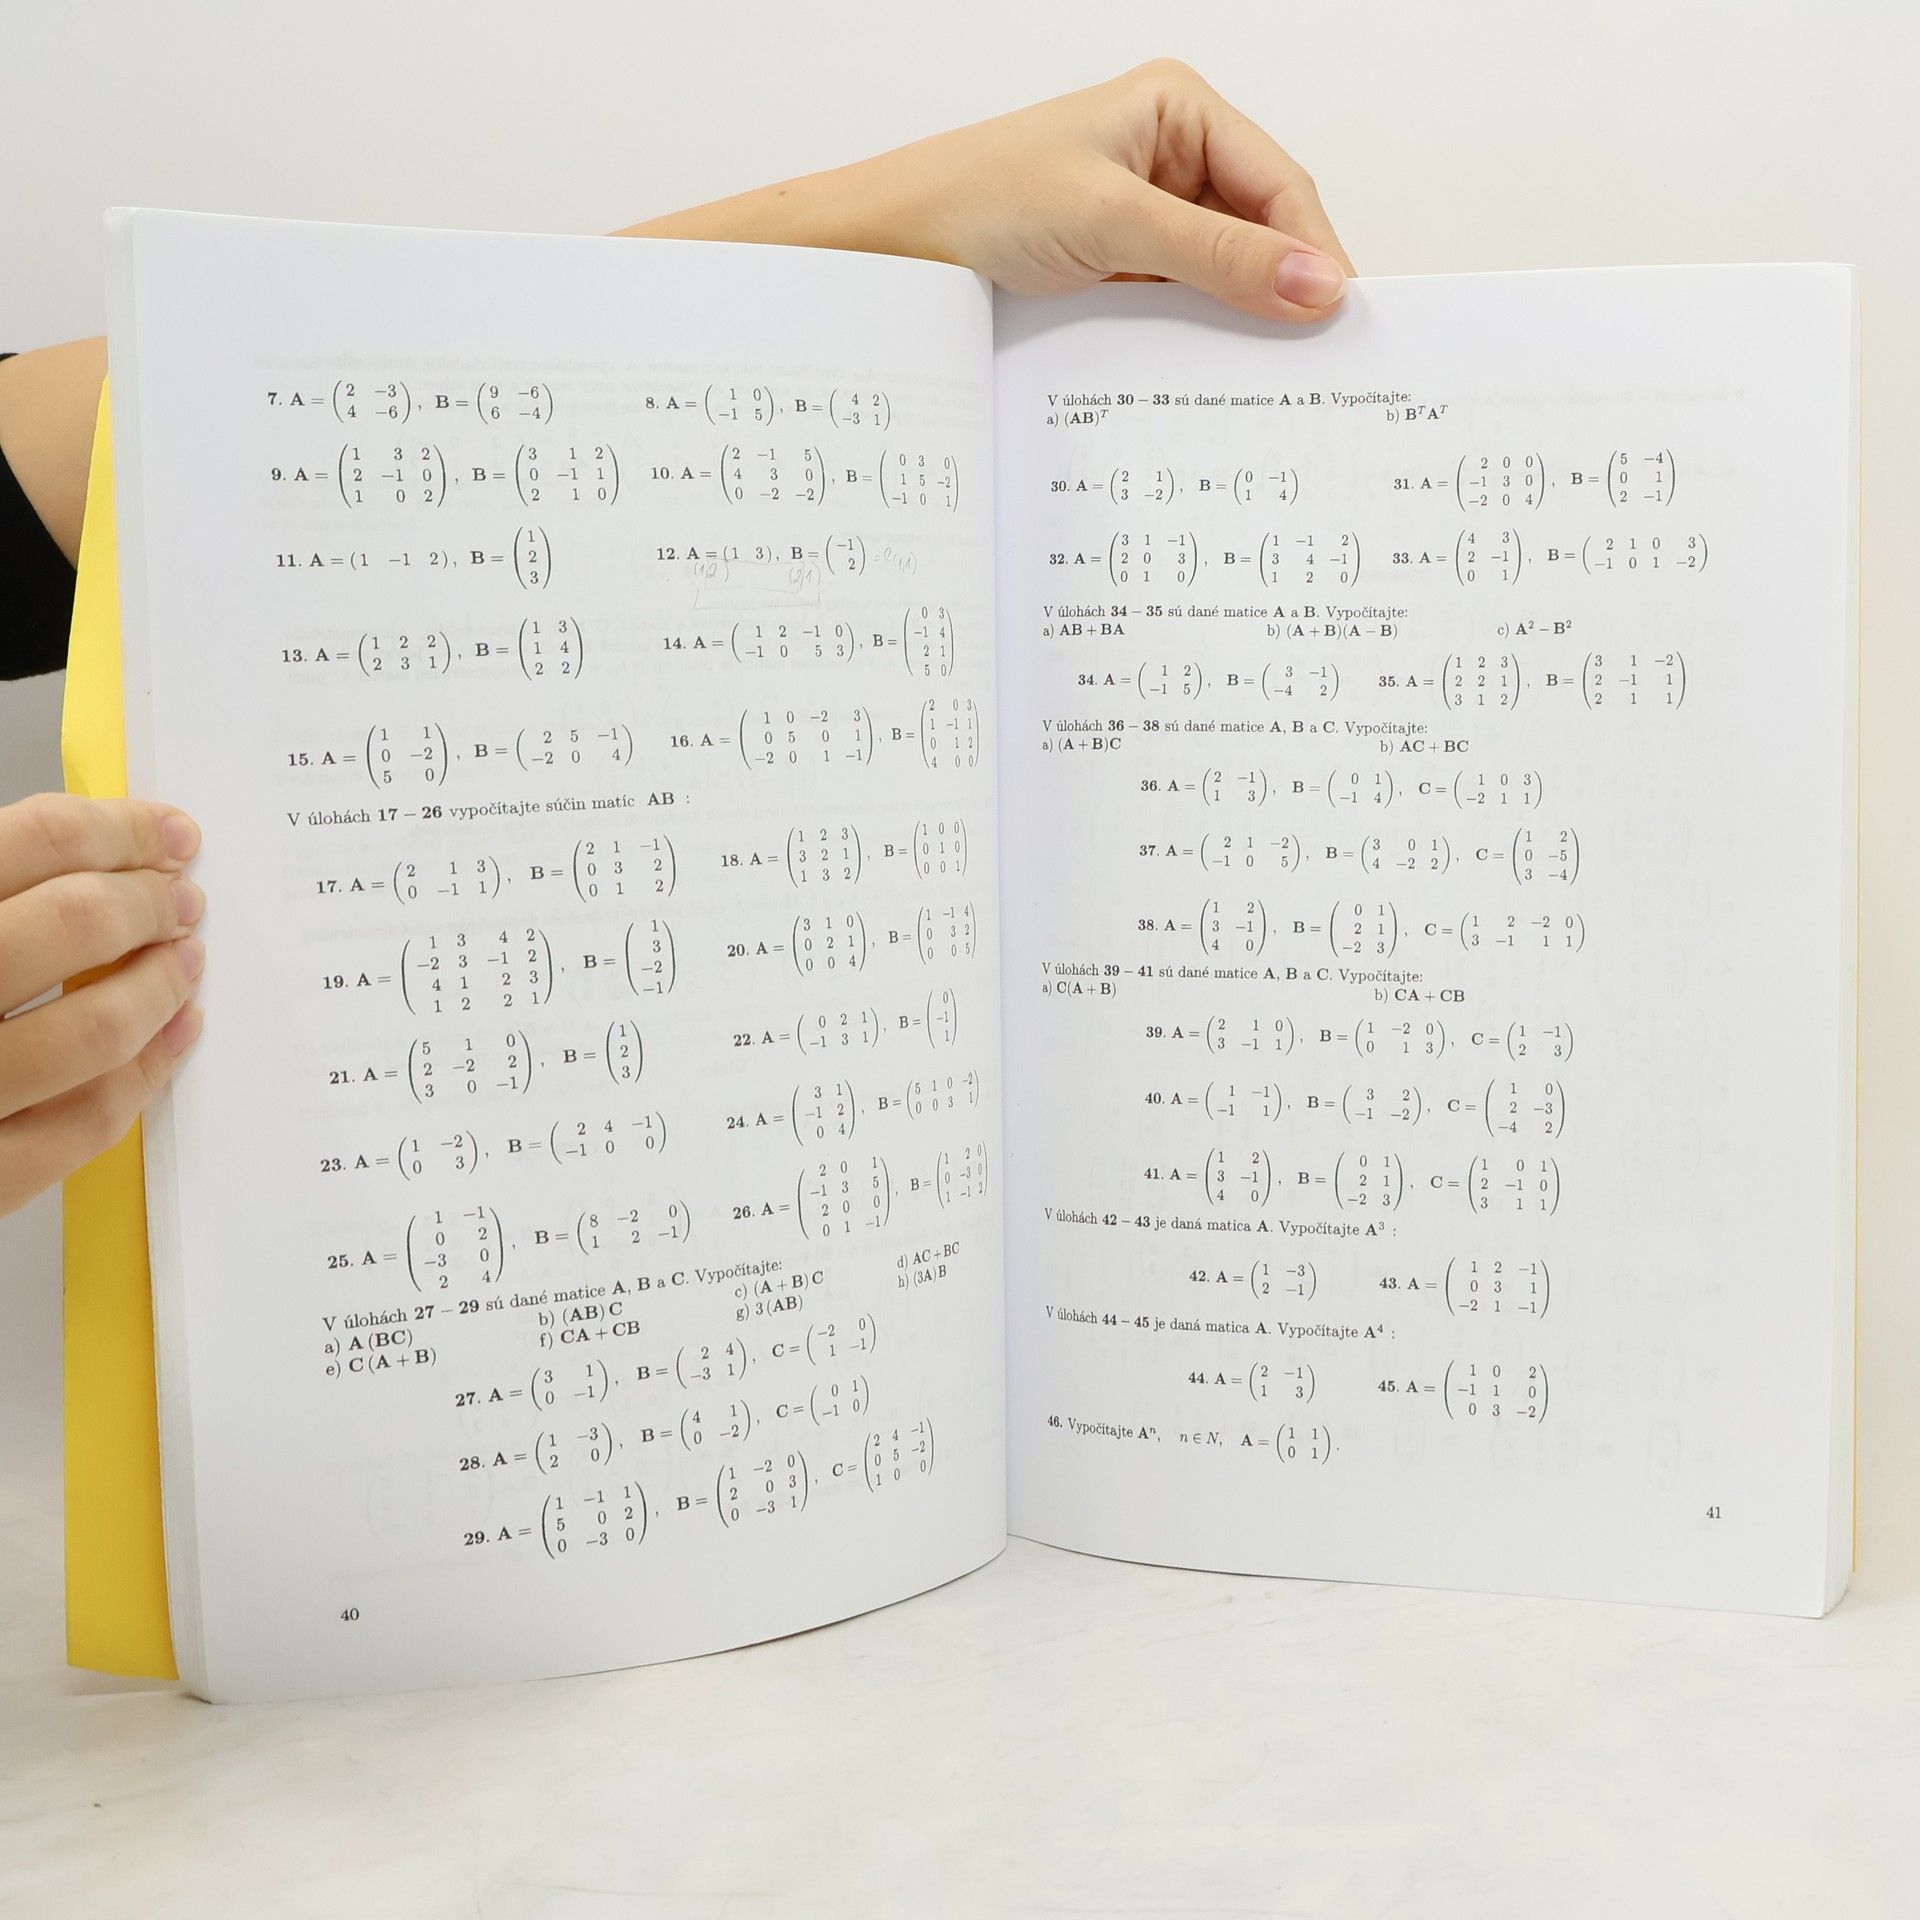 7. A = (2 −3; 4 −6), B = (9 −6; 6 −4)
8. A = (1 0; −1 5), B = (4 2; −3 1)
9. A = (1 3 2; 2 −1 0; 1 0 2), B = (3 1 2; 0 −1 1; 2 1 0)
10. A = (2 −1 5; 4 3 0; 0 −2 −2), B = (0 3 0; 1 5 −2; −1 0 1)
11. A = (1 −1 2), B = (1; 2; 3)
12. A = (1 3), B = (−1; 2)
13. A = (1 2 2; 2 3 1), B = (1 3; 1 4; 2 2)
14. A = (1 2 −1 0; −1 0 5 3), B = (0 3; −1 4; 2 1; 5 0)
15. A = (1 1; 0 −2; 5 0), B = (2 5 −1; −2 0 4)
16. A = (1 0 −2 3; 0 5 0 1; −2 0 1 −1), B = (2 0 3; 1 −1 1; 0 1 2; 4 0 0)
V úlohách 17 – 26 vypočítajte súčin matíc AB :
17. A = (2 1 3; 0 −1 1), B = (2 1 −1; 0 3 2; 0 1 2)
18. A = (1 2 3; 3 2 1; 1 3 2), B = (1 0 0; 0 1 0; 0 0 1)
19. A = (1 3 4 2; −2 3 −1 2; 4 1 2 3; 1 2 2 1), B = (1; 3; −2; −1)
20. A = (3 1 0; 0 2 1; 0 0 4), B = (1 −1 4; 0 3 2; 0 0 5)
21. A = (5 1 0; 2 −2 2; 3 0 −1), B = (1; 2; 3)
22. A = (0 2 1; −1 3 1), B = (0; −1; 1)
23. A = (1 −2; 0 3), B = (2 4 −1; −1 0 0)
24. A = (3 1; −1 2; 0 4), B = (5 1 0 −2; 0 0 3 1)
25. A = (1 −1; 0 2; −3 0; 2 4), B = (8 −2 0; 1 2 −1)
26. A = (2 0 1; −1 3 5; 2 0 0; 0 1 −1), B = (1 2 0; 0 −3 0; 1 −1 2)
V úlohách 27 – 29 sú dané matice A, B a C. Vypočítajte:
a) A (BC) b) (AB) C c) (A + B) C d) AC + BC
e) C (A + B) f) CA + CB g) 3 (AB) h) (3A) B
27. A = (3 1; 0 −1), B = (2 4; −3 1), C = (−2 0; 1 −1)
28. A = (1 −3; 2 0), B = (4 1; 0 −2), C = (0 1; −1 0)
29. A = (1 −1 1; 5 0 2; 0 −3 0), B = (1 −2 0; 2 0 3; 0 −3 1), C = (2 4 −1; 0 5 −2; 1 0 0)
40
V úlohách 30 – 33 sú dané matice A a B. Vypočítajte:
a) (AB)ᵀ b) BᵀAᵀ
30. A = (2 1; 3 −2), B = (0 −1; 1 4)
31. A = (2 0 0; −1 3 0; −2 0 4), B = (5 −4; 0 1; 2 −1)
32. A = (3 1 −1; 2 0 3; 0 1 0), B = (1 −1 2; 3 4 −1; 1 2 0)
33. A = (4 3; 2 −1; 0 1), B = (2 1 0 3; −1 0 1 −2)
V úlohách 34 – 35 sú dané matice A a B. Vypočítajte:
a) AB + BA b) (A + B)(A − B) c) A² − B²
34. A = (1 2; −1 5), B = (3 −1; −4 2)
35. A = (1 2 3; 2 2 1; 3 1 2), B = (3 1 −2; 2 −1 1; 2 1 1)
V úlohách 36 – 38 sú dané matice A, B a C. Vypočítajte:
a) (A + B)C b) AC + BC
36. A = (2 −1; 1 3), B = (0 1; −1 4), C = (1 0 3; −2 1 1)
37. A = (2 1 −2; −1 0 5), B = (3 0 1; 4 −2 2), C = (1 2; 0 −5; 3 −4)
38. A = (1 2; 3 −1; 4 0), B = (0 1; 2 1; −2 3), C = (1 2 −2 0; 3 −1 1 1)
V úlohách 39 – 41 sú dané matice A, B a C. Vypočítajte:
a) C(A + B) b) CA + CB
39. A = (2 1 0; 3 −1 1), B = (1 −2 0; 0 1 3), C = (1 −1; 2 3)
40. A = (1 −1; −1 1), B = (3 2; −1 −2), C = (1 0; 2 −3; −4 2)
41. A = (1 2; 3 −1; 4 0), B = (0 1; 2 1; −2 3), C = (1 0 1; 2 −1 0; 3 1 1)
V úlohách 42 – 43 je daná matica A. Vypočítajte A³ :
42. A = (1 −3; 2 −1)
43. A = (1 2 −1; 0 3 1; −2 1 −1)
V úlohách 44 – 45 je daná matica A. Vypočítajte A⁴ :
44. A = (2 −1; 1 3)
45. A = (1 0 2; −1 1 0; 0 3 −2)
46. Vypočítajte Aⁿ, n ∈ N, A = (1 1; 0 1).
41